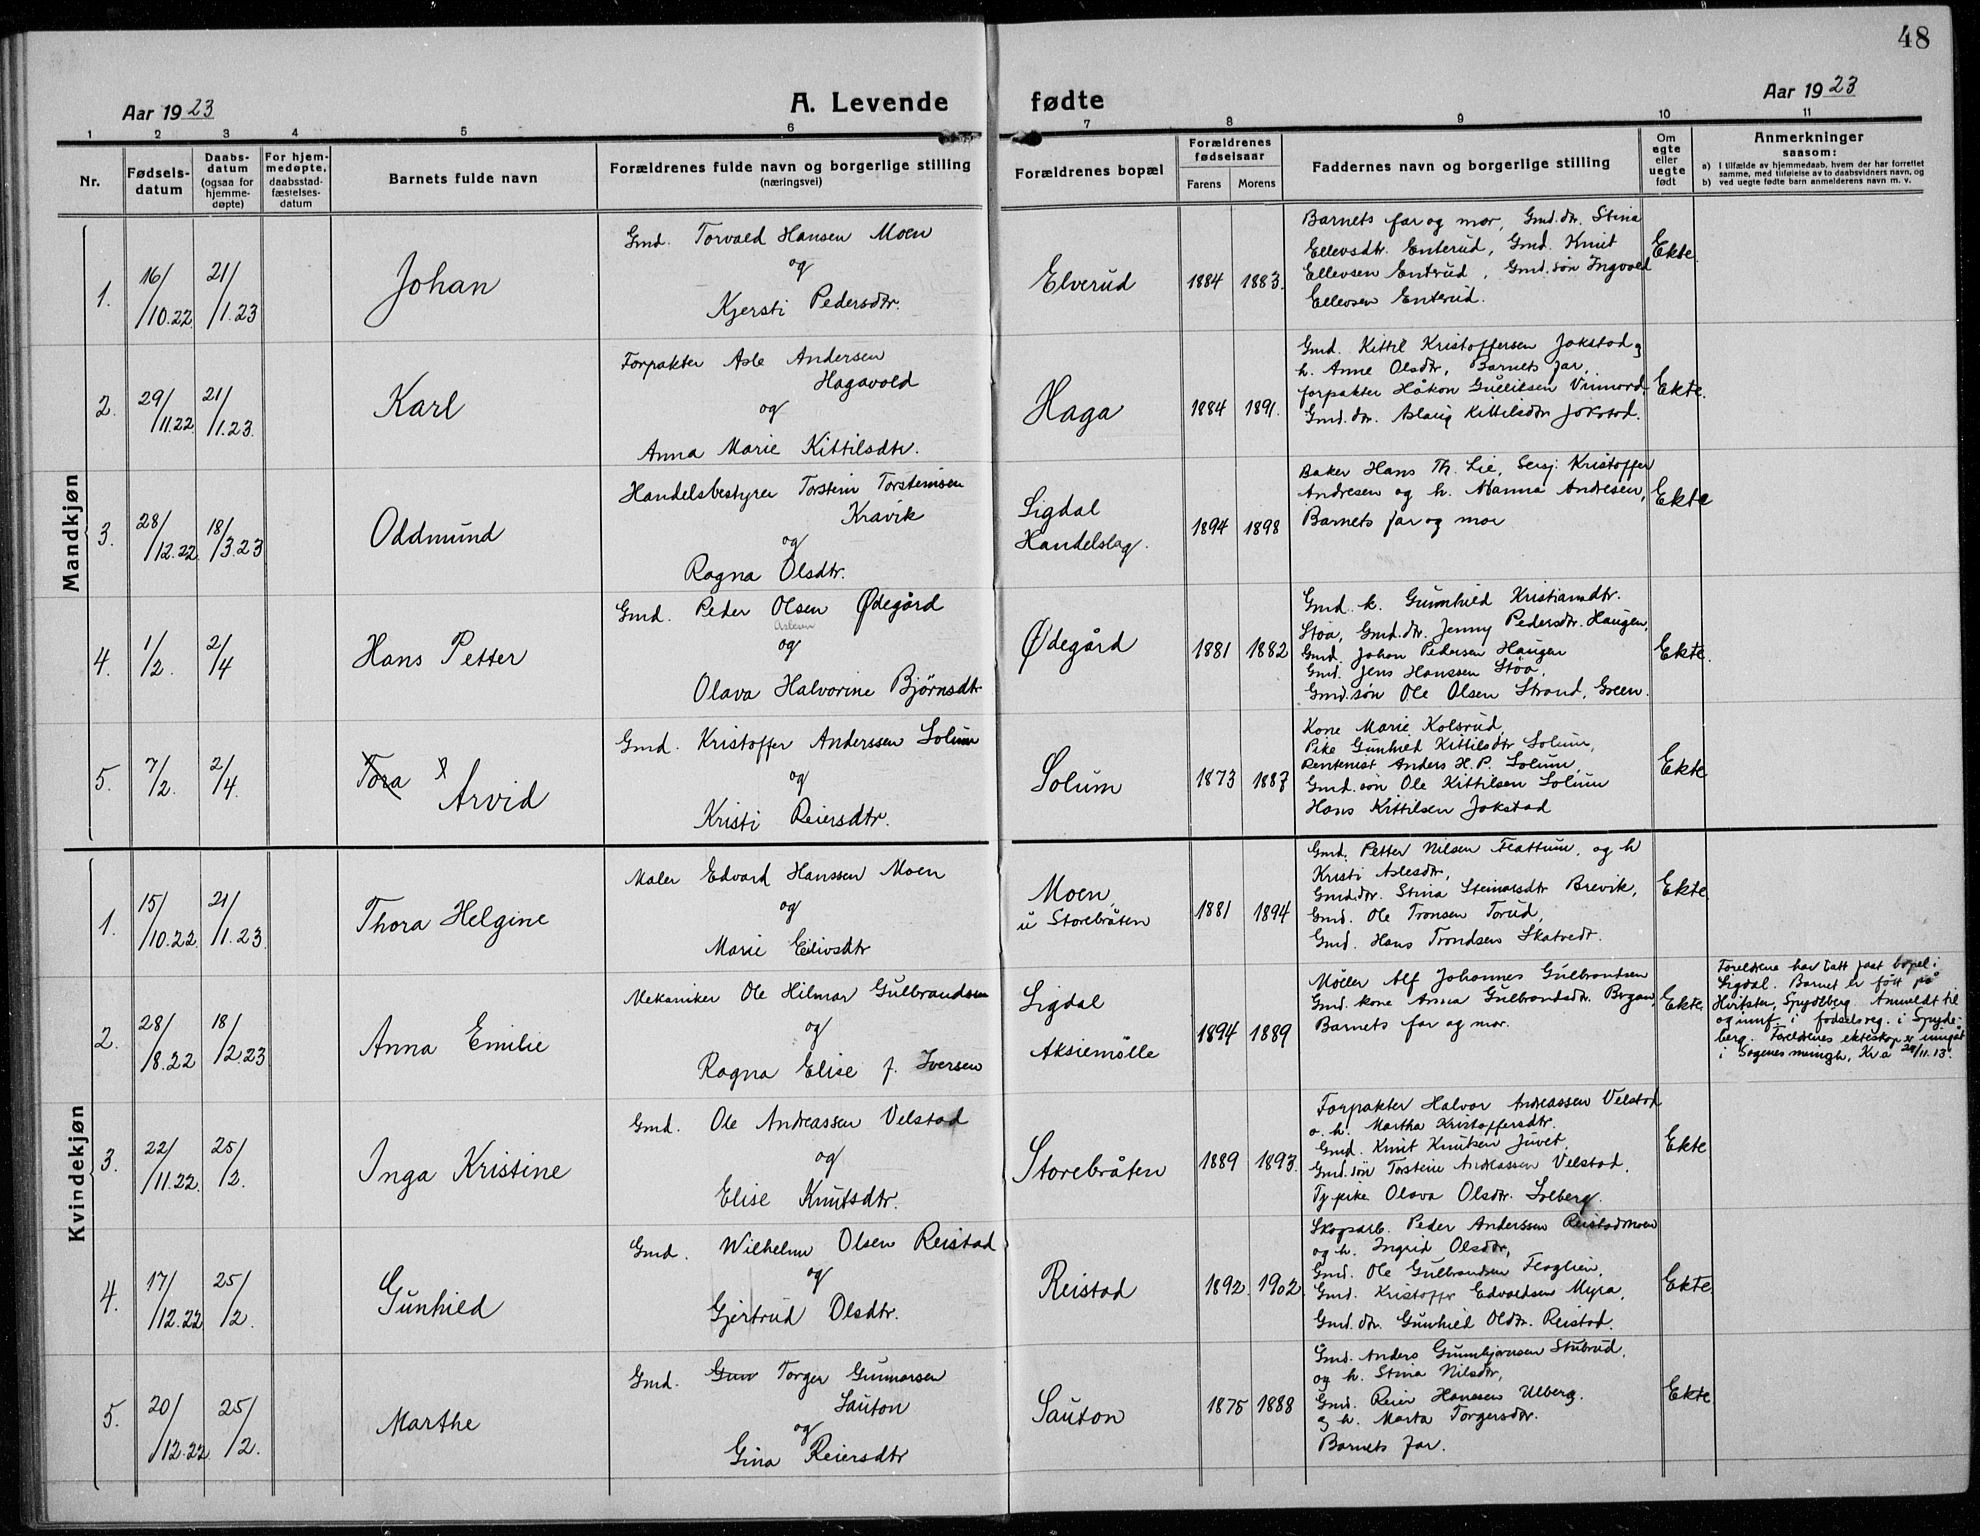 48
Aar 1923
A. Levende fødte
Aar 1923
1 2 3 4 5 6 7 8 9 10 11
Nr.
Fødsels-
datum
Daabs-
datum
(ogsaa for
hjemme-
døpte)
For hjem-
medøpte,
daabsstad-
fæstelses-
datum
Barnets fulde navn
Forældrenes fulde navn og borgerlige stilling
(næringsvei)
Forældrenes bopæl
Forældrenes
fødselsaar
Farens Morens
Faddernes navn og borgerlige stilling
Om
egte
eller
uegte
født
Anmerkninger
saasom:
a) I tilfælde av hjemmedaab, hvem der har forrettet
samme, med tilføielse av to daabsvidners navn, og
b) ved uegte fødte barn anmelderens navn m. v.
Mandkjøn
1.
16/10.22
21/1.23
Johan
Gmd. Torvald Hansen Moen
og
Kjersti Pedersdtr.
Elverud
1884 1883.
Barnets far og mor, Gmd. dtr. Stina
Ellevsdtr. Enterud, Gmd. Knut
Ellevsen Enterud, Gmd. søn Ingvald
Ellevsen Enterud.
Ekte.
2.
29/11.22
21/1.23.
Karl
Forpakter Asle Andersen
Hagavold
og
Anna Marie Kittilsdtr.
Haga
1884 1891.
Gmd. Kittil Kristoffersen Jokstad og
h. Anne Olsdtr, Barnets far,
forpakter Håkon Gulliksen
Gmd. dtr. Aslaug Kittilsdtr Jokstad.
Ekte.
3.
28/12.22.
18/3.23
Oddmund
Handelsbestyrer Torstein Torsteinsen
Kravik
og
Ragna Olsdtr.
Sigdal
Handelslag.
1894 1898
Baker Hans Th. Lie, Sersj. Kristoffer
Andresen og h. Manna Andresen,
Barnets far og mor
Ekte
4.
1/2.
2/4
Hans Petter
Gmd. Peder Olsen Ødegård
Aslesen
og
Olava Halvorine Bjørnsdtr
Ødegård
1881 1882
Gmd. k. Gunhild Kristiansdtr.
Støa, Gmd. dtr. Jenny Pedersdtr. Haugen,
Gmd. Johan Pedersen Haugen
Gmd. Jens Hanssen Støa,
Gmd. søn Ole Olsen Strand, Green.
Ekte.
5.
7/2.
2/4.
Tora Arvid
Gmd. Kristoffer Anderssen Solum
og
Kristi Reiersdtr.
Solum
1873 1887
Kone Marie Kolsrud,
Pike Gunhild Kittilsdtr Solum,
Rentenist Anders H. P. Solum,
Gmd. søn Ole Kittilsen Solum
Hans Kittilsen Jokstad
Ekte
Kvindekjøn
1.
15/10.22
21/1.23.
Thora Helgine
Maler Edvard Hanssen Moen
og
Marie Eilivsdtr
Moen,
u Storebråten
1881 1894
Gmd. Petter Nilsen Flattum, og h
Kristi Aslesdtr,
Gmd. dtr. Stina Steinarsdtr Brevik,
Gmd. Ole Tronsen Torud,
Gmd. Hans Trondsen Skatvedt.
Ekte
2.
28/8.22
18/2.23
Anna Emilie
Mekaniker Ole Hilmar Gulbrandsen
og
Ragna Elise f. Iversen
Sigdal
Aksiemølle
1894 1889
Møller Alf Johannes Gulbrandsen
Gmd. kone Anna Gulbrandsdtr.
Barnets far og mor.
Ekte.
Foreldrene har tatt fast bopel i
Sigdal. Barnet er født på
Spydeberg. Anmeldt til
og innf. i fødselsreg. i Spyde-
berg. Foreldrenes ekteskap er inngåt
i Sogenes Kr.a 29/11.13.
3.
22/11.22.
25/2.
Inga Kristine
Gmd. Ole Andreassen Velstad
og
Elise Knutsdtr.
Storebråten
1889 1893.
Forpakter Halvor Andreassen Velstad
o. h. Martha Kristoffersdtr.
Gmd. Knut Knutsen Juvet,
Gmd. søn Torstein Andreassen Velstad,
Tj. pike Olava Olsdtr. Solberg.
Ekte
4.
17/12.22
25/2.
Gunhild
Gmd. Wilhelm Olsen Reistad
og
Gjertrud Olsdtr.
Reistad
1892. 1902.
Skogsarb. Peder Anderssen Reistadmoen
og h. Ingrid Olsdtr,
Gmd. Ole Gulbrandsen Flaglien,
Gmd. Kristoffer Edvardsen Myra,
Gmd. dtr. Gunhild Olsdtr. Reistad.
Ekte.
5.
20/12.22
25/2.
Marthe
Gmd. Gun Torger Gunnarsen
Sauton
og
Gina Reiersdtr
Sauton
1875 1888
Gmd. Anders Gunbjørnsen Stubrud,
og h. Stina Nilsdtr,
Gmd. Reier Hanssen Ulberg.
og h. Marta Torgersdtr.
Barnets far.
Ekte